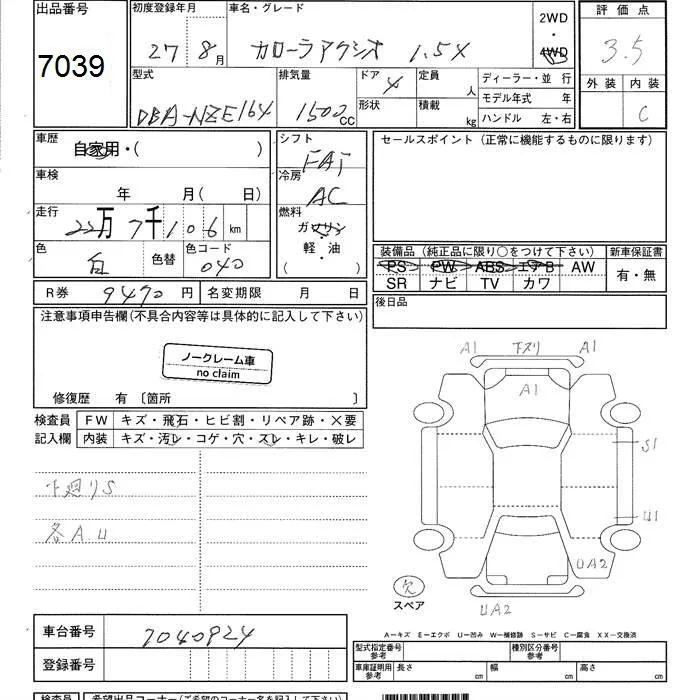 出品番号
7039
初度登録年月
27 8月
車名・グレード
カローラアクシオ 1.5X
2WD
・
4WD
評価点
3.5
外装 内装
C
型式
DBA-NZE164
排気量
1500cc
ドア
4
形状
定員
人
積載
kg
ディーラー・並 行
モデル年式 年
ハンドル 左・右
車歴
自家用・( )
車検
年 月( 日)
走行
22万7千106km
色
白
色替
色コード
040
シフト
FAT
冷房
AC
燃料
ガソリン
軽・油
( ・ )
セールスポイント(正常に機能するものに限ります)
装備品(純正品に限り○をつけて下さい)
PS PW ABS エアB AW
SR ナビ TV カワ
新車保証書
有・無
R券 9470円
名変期限 月 日
後日品
注意事項申告欄(不具合内容等は具体的に記入して下さい)
ノークレーム車
no claim
修復歴 有〔箇所 〕
検査員
記入欄
FW キズ・飛石・ヒビ割・リペア跡・X要
内装 キズ・汚レ・コゲ・穴・スレ・キレ・破レ
下廻りS
各A.U
A1 下スリ A1
A1
S1
U1
UA2
UA2
欠
スペア
A―キズ E―エクボ U―凹み W―補修跡 S―サビ C―腐食 XX―交換済
車台番号
7040924
登録番号
型式指定番号
参考
種別区分番号
参考
車庫証明用
参考
長さ cm
幅 cm
高さ cm
検査員
希望出品コーナー(ご希望のコーナー名を記入して下さい)